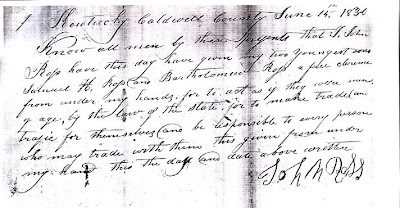 Kentucky Caldwell County June 14th 1830
Know all men by these presents that I John
Ross have this day have given my two Youngest sons
Samuel H. Ross and Bartholomew Ross a full clearence
from under my hands for to act as if they were men
of age, by the law of the state, for to make trade (and
trafic for themselves (and be responsible to every person
who may trade with them this given from under
my hand this the day (and date above written
John Ross